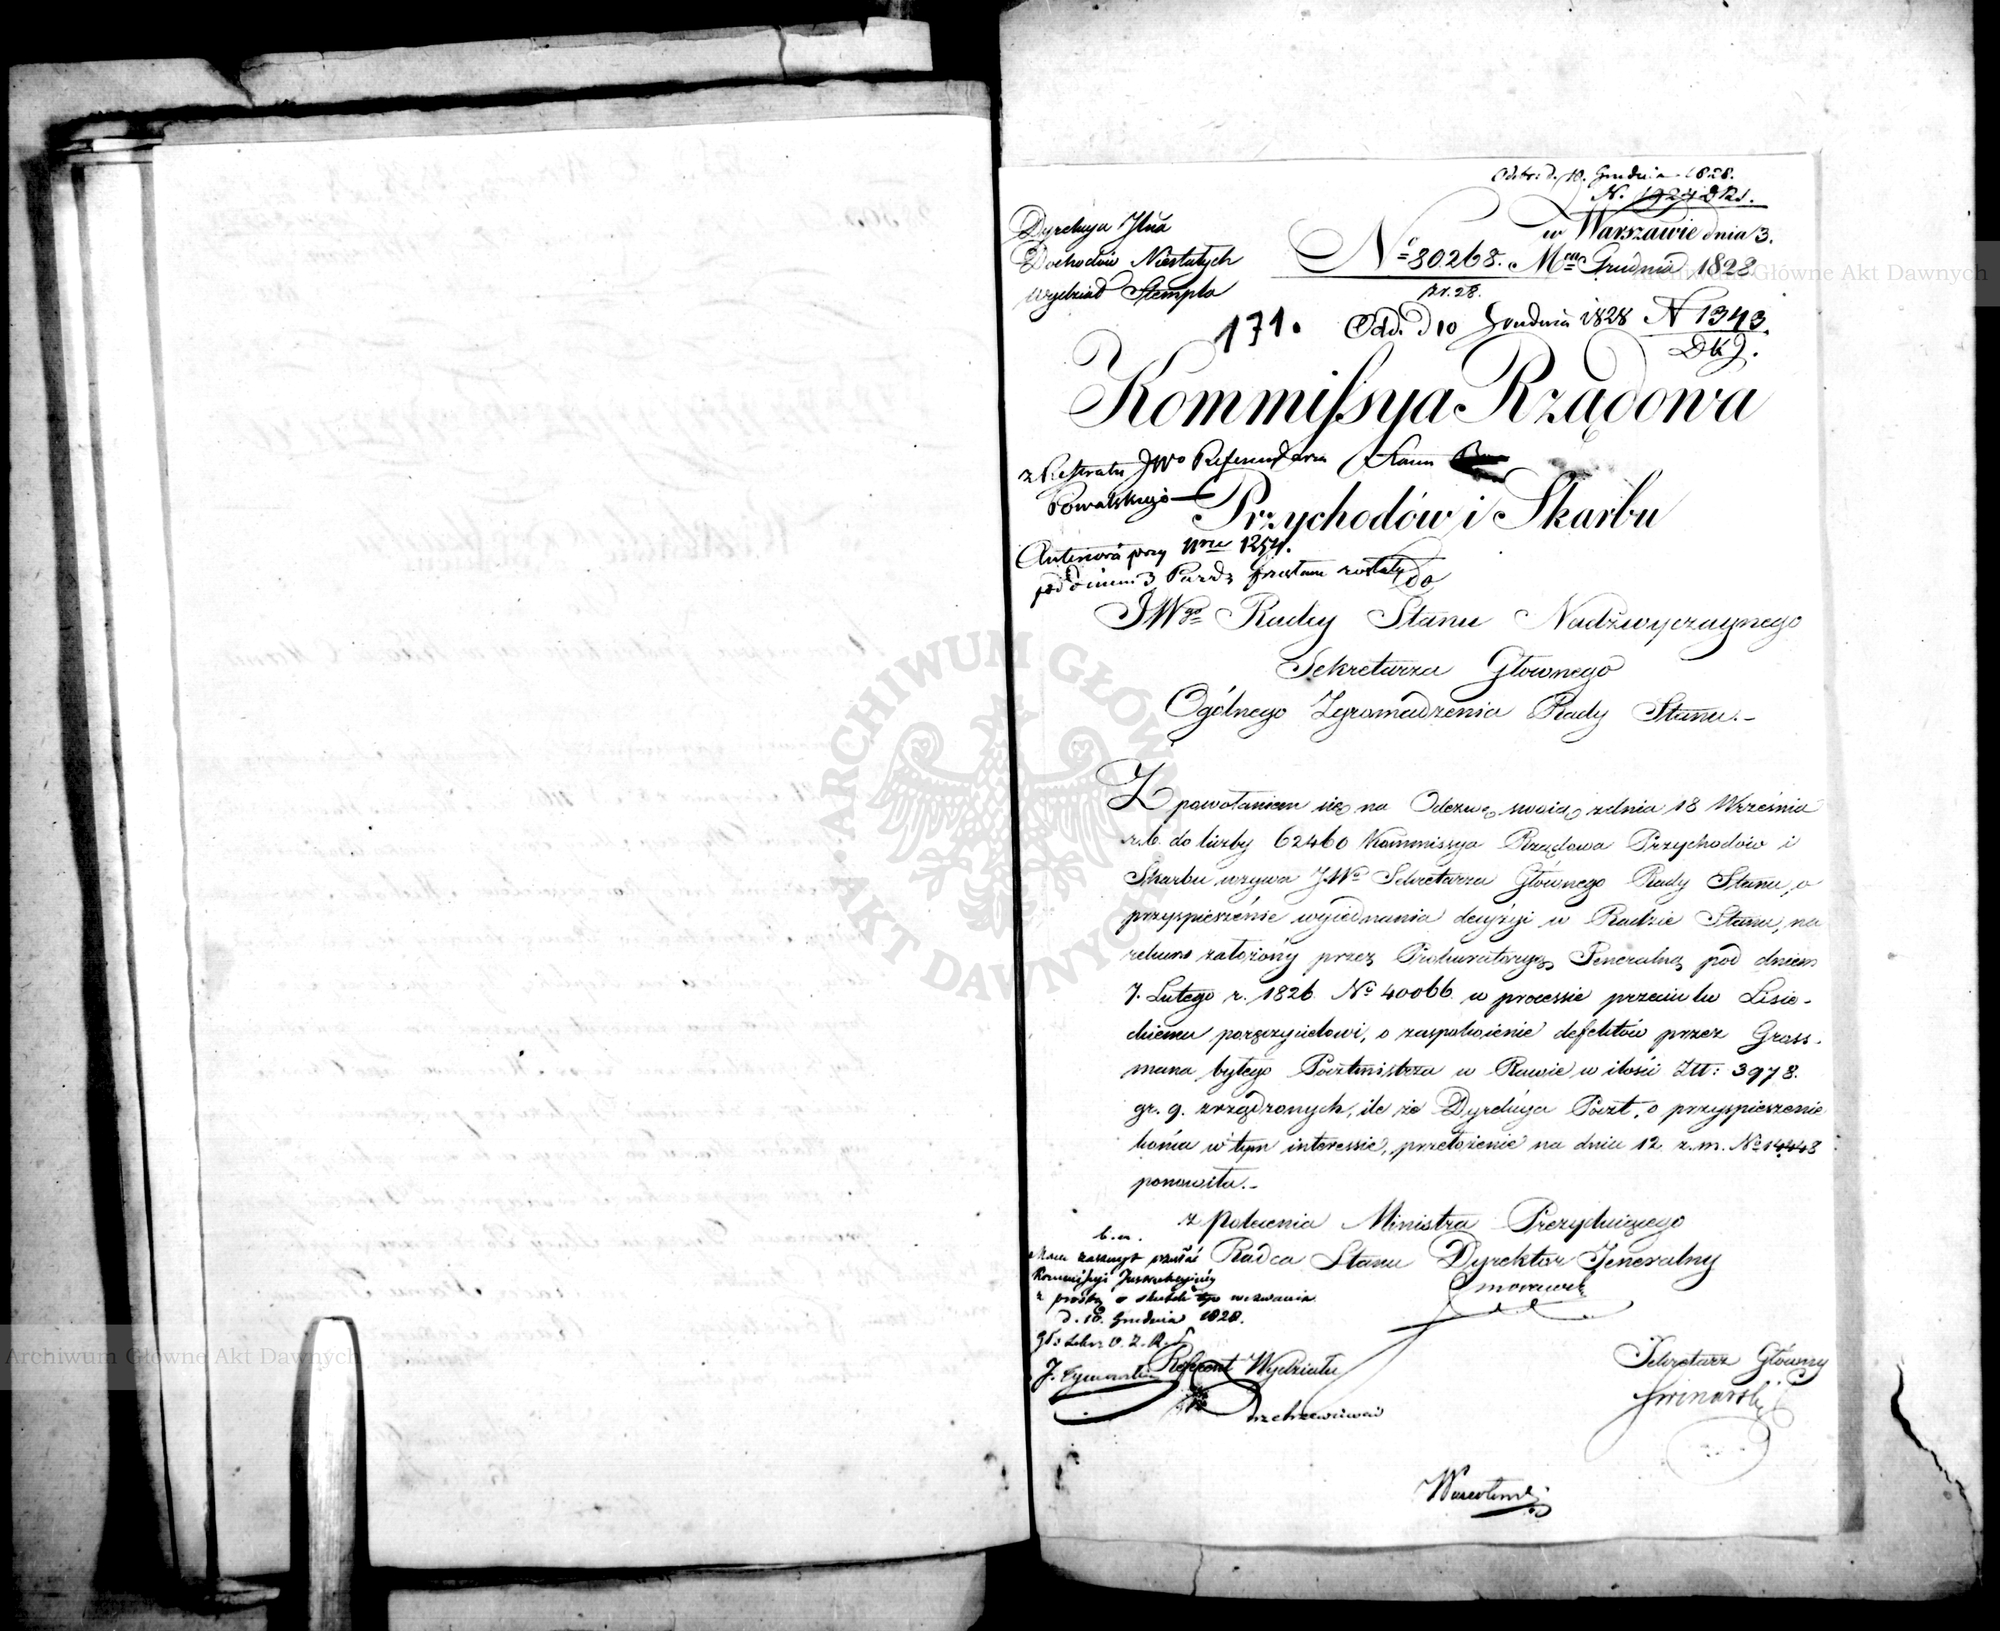 Odebr: d. 10. Grudnia 1828.
N. 1924 DKJ.
Dyrekcya Jlna
Dochodów Niestałych
Wydział Stempla
w Warszawie dnia 3.
No 80268. Mca Grudnia 1828
pr. 28.
171. Odd. d 10 Grudnia 1828 N 1343.
DKJ.
Kommissya Rządowa
z Referatu JWo Referendarza Stanu
Kowalskiego
Przychodów i Skarbu
Anteriora przy Nrze 1254.
pod dniem 3 Paźdz
do
JWgo Radcy Stanu Nadzwyczaynego
Sekretarza Głownego
Ogólnego Zgromadzenia Rady Stanu.-
Z powołaniem się na Odezwę swoię z dnia 18 Września
r.b. do liczby 62460 Kommissya Rządowa Przychodów i
Skarbu wzywa JWo Sekretarza Głównego Rady Stanu, o
przyspieszenie wyiednania decyzyi w Radzie Stanu, na
rekurs założony przez Prokuratoryę Jeneralną pod dniem
7. Lutego r. 1826. No 40066 w processie przeciwko Lisie-
ckiemu poręczycielowi, o zaspokoienie defektów przez Grass-
mana byłego Pocztmistrza w Rawie w ilości Złt: 3978.
gr. 9. zrządzonych, ile że Dyrekcya Poczt, o przyspieszenie
końca w tym interessie, przełożenie na dniu 12 z.m. No 14448
ponowiła.-
z polecenia Ministra Prezyduiącego
Radca Stanu Dyrektor Jeneralny
Morawski
b.u.
zaszczyt przesłać
Kommissyi Instrukcyiney
z prośbą o skutek tego wezwania
d. 10. Grudnia 1828.
J. Tymowski
Referent Wydziału
Sekretarz Główny
Archiwum Główne Akt Dawnych
Archiwum Główne Akt Dawnych
ARCHIWUM GŁÓWNE AKT DAWNYCH